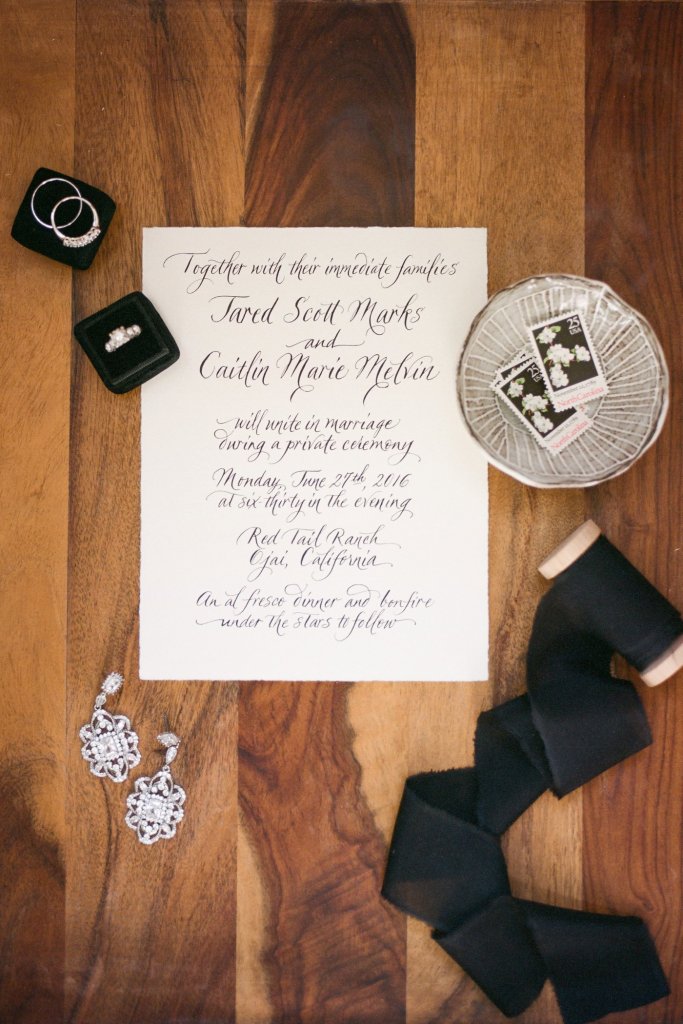 Together with their immediate families
Jared Scott Marks
and
Caitlin Marie Melvin
will unite in marriage
during a private ceremony
Monday, June 27th, 2016
at six-thirty in the evening
Red Tail Ranch
Ojai, California
An al fresco dinner and bonfire
under the stars to follow
25
USA
North Carolina
25
North Carolina